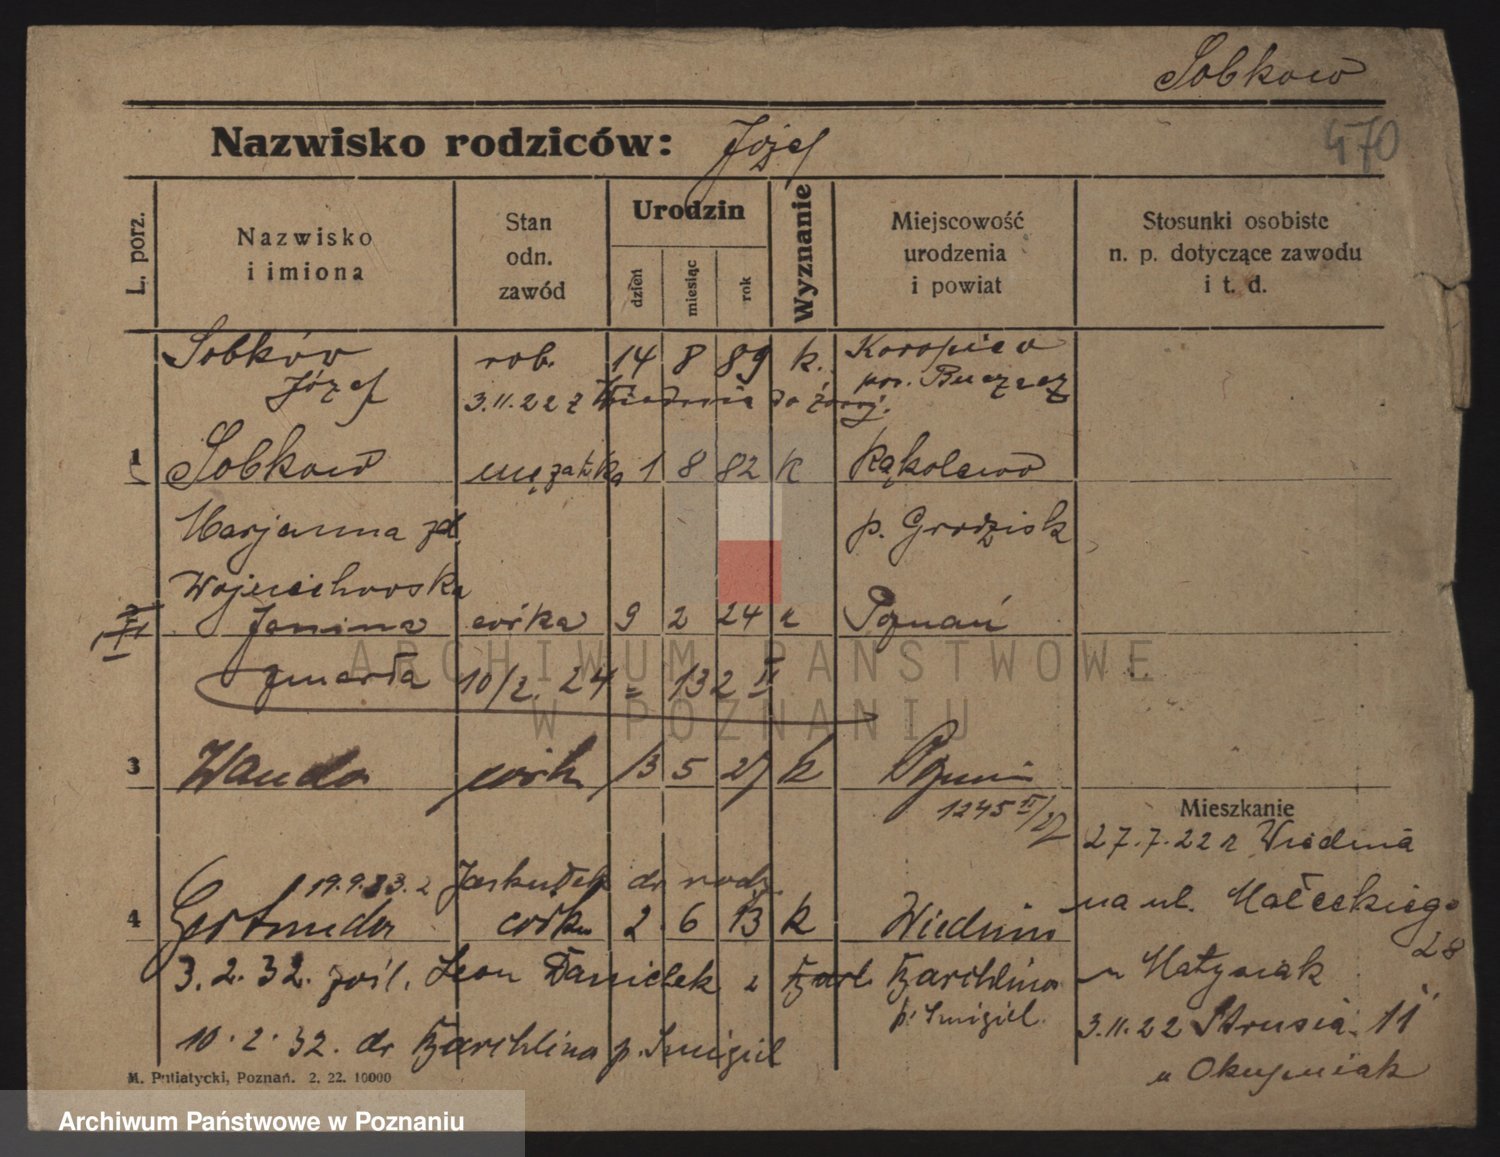 Sobkow
Nazwisko rodziców: Józef
470
L. porz.
Nazwisko
i imiona
Stan
odn.
zawód
Urodzin
dzień
miesiąc
rok
Wyznanie
Miejscowość
urodzenia
i powiat
Stosunki osobiste
n. p. dotyczące zawodu
i t. d.
Sobków rob. 14 8 89 k. Koropiec
Józef pow. Buczacz
3.11.22 z Wiednia do
1 Sobkow mężatka 1 8 82 k Kąkolewo
Marjanna zd. p. Grodzisk
Wojciechowska
Janina córka 9 2 24 k Poznań
zmarła 10/2. 24 = 132 II
3 Wanda córk 13 5 27 k Poznań
1245 II/27
Mieszkanie
27.7.22 z Wiednia
19.9.33. z do rodz.
na ul. Małeckiego
28
4 Gertruda córka 2 6 13 k Wiedniu
3.2.32. Leon Danielek z Karchlina
u Matysiak
p. Śmigiel.
3.11.22 Strusia 11
10.2.32. do Karchlina p. Śmigiel
u Okupniak
M. Putiatycki, Poznań. 2. 22. 10000
ARCHIWUM PAŃSTWOWE
W POZNANIU
Archiwum Państwowe w Poznaniu